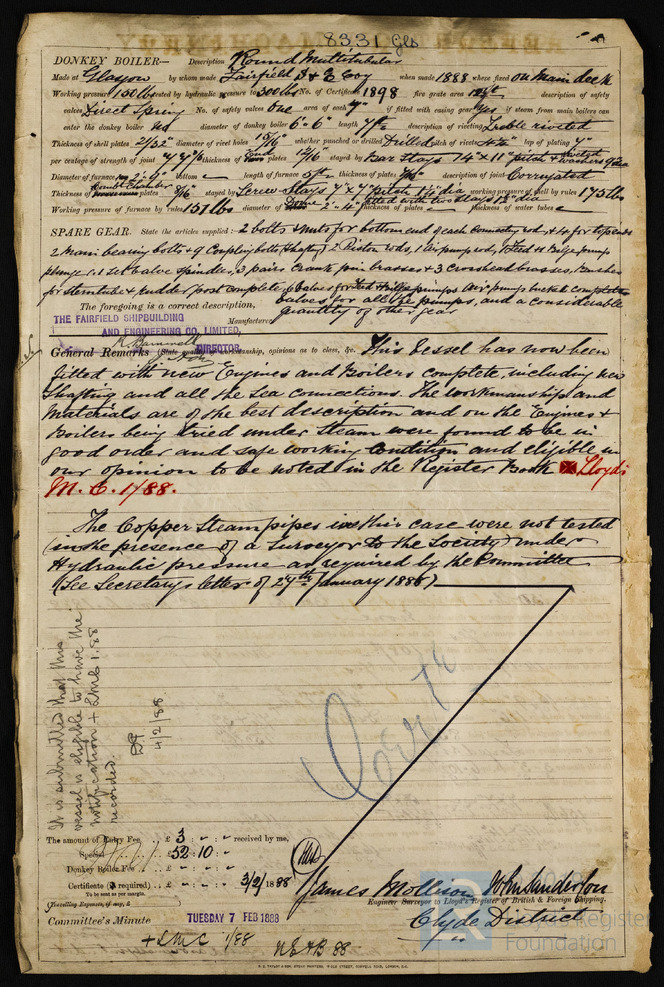 8331 Gls
DONKEY BOILER— Description Round Multitubular
Made at Glasgow by whom made Fairfield S & E Coy when made 1888 where fixed on Main deck
Working pressure 150 lbs tested by hydraulic pressure to 300 lbs No. of Certificate 1898 fire grate area description of safety
valves Direct Spring No. of safety valves One area of each 7" if fitted with easing gear Yes if steam from main boilers can
enter the donkey boiler No diameter of donkey boiler 6' 6" length 7 ft description of riveting Treble riveted
Thickness of shell plates 21/32" diameter of rivet holes 15/16" whether punched or drilled Drilled pitch of rivets lap of plating
per centage of strength of joint thickness of plates 12/16 stayed by Bar Stays 14" x 11" pitch &
Diameter of furnace 2'. 9" bottom length of furnace 5 ft thickness of plates description of joint Corrugated
Thickness of Combn Chamber plates 9/16 stayed by Screw Stays 7" x 7" pitch dia working pressure of shell by rules 175 lbs
Working pressure of furnace by rules 151 lbs diameter of 2' 4" fitted with two stays dia thickness of plates thickness of water tubes
SPARE GEAR. State the articles supplied:— 2 bolts & nuts for bottom end of each connecting rod, & 4 for top ends
2 Main bearing bolts & 9 Coupling bolts (shafting) 2 Piston rods, 1 Air pump rod, 1 Feed & Bilge pump
plunger, 1 Set valve spindles, 3 pairs Crank pin brasses & 3 Crosshead brasses, Bushes
for sterntube & rudder post complete, 6 valves for Feed & Bilge pumps Air pump bucket complete
valves for all the pumps, and a considerable
The foregoing is a correct description,
quantity of other gear
Manufacturer
THE FAIRFIELD SHIPBUILDING
AND ENGINEERING CO. LIMITED,
DIRECTOR.
General Remarks (State quality of workmanship, opinions as to class, &c. This vessel has now been
fitted with new Engines and Boilers complete, including new
Shafting and all the Sea connections. The workmanship and
Materials are of the best description and on the Engines &
Boilers being tried under steam were found to be in
good order and safe working condition and eligible in
our opinion to be noted in the Register Book Lloyds
M. C. 1/88.
The Copper Steam pipes in this case were not tested
(in the presence of a Surveyor to the Society) under
Hydraulic pressure as required by the Committee
(See Secretarys letter of 27th January 1886)
It is submitted that this
vessel is eligible to have the
notification + LMC 1.88
recorded.
4/2/88
The amount of Entry Fee £ 3 : " : " received by me,
Special £ 52 : 10 : "
Donkey Boiler Fee £
Certificate (if required) £ 3/2/1888
To be sent as per margin.
(Travelling Expenses, if any, £
James Mollison John Sanderson
Engineer Surveyor to Lloyd's Register of British & Foreign Shipping.
Committee's Minute TUESDAY 7 FEB 1888
Clyde District
+ LMC 1/88 NE&B 88
Register
Foundation